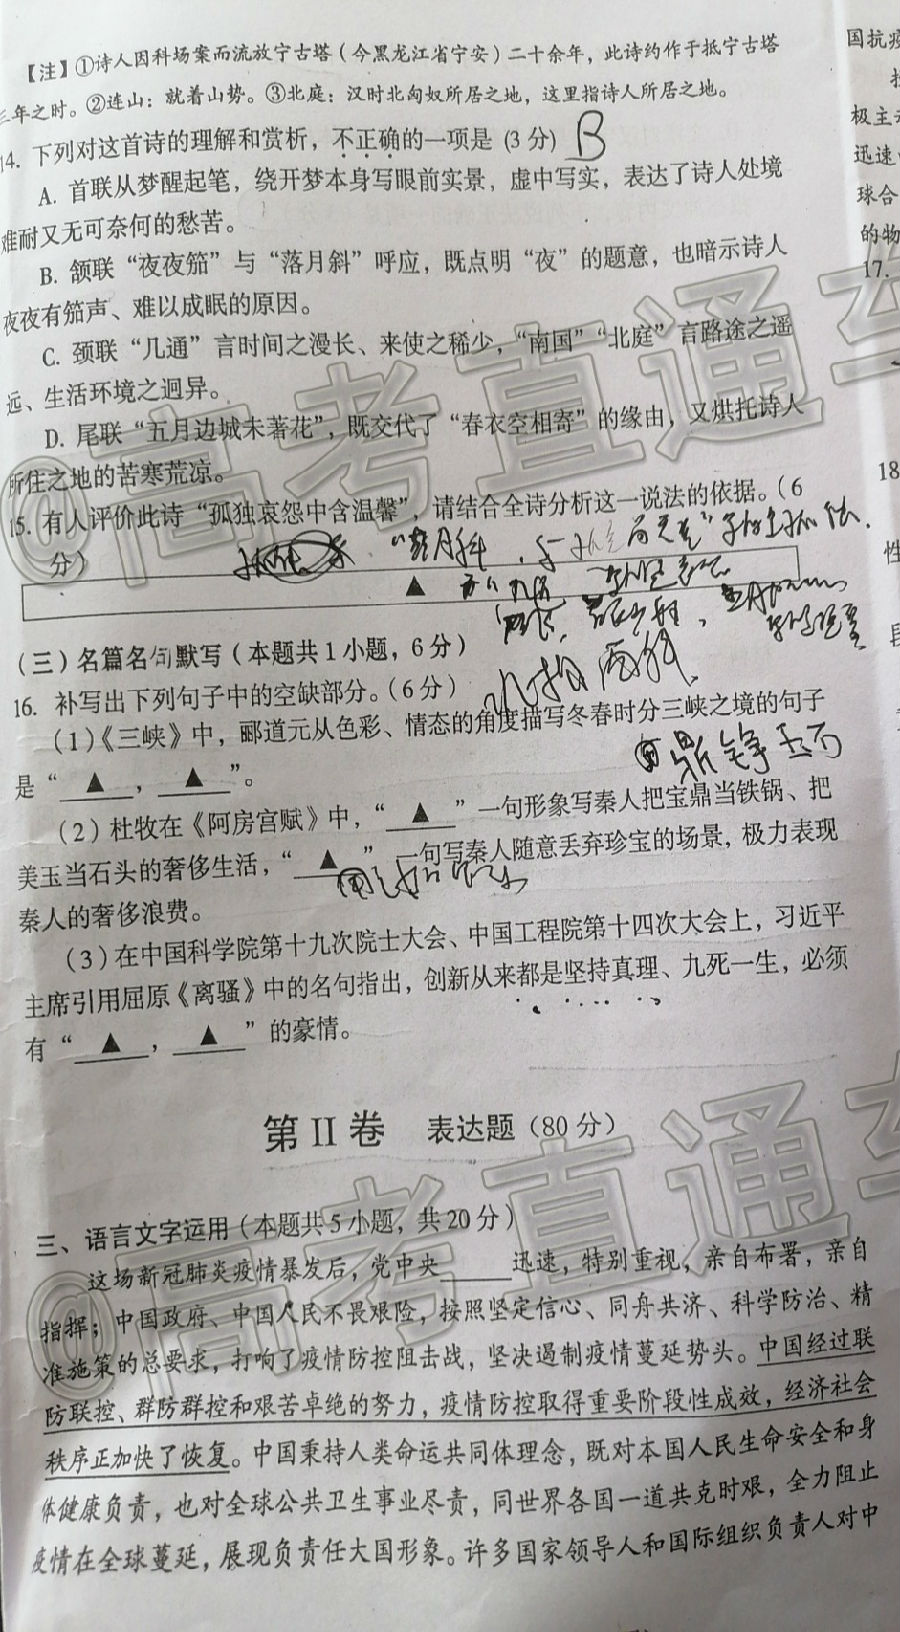 【注】①诗人因科场案而流放宁古塔（今黑龙江省宁安）二十余年，此诗约作于抵宁古塔
三年之时。②连山：就着山势。③北庭：汉时北匈奴所居之地，这里指诗人所居之地。
14. 下列对这首诗的理解和赏析，不正确的一项是 (3 分) B
A. 首联从梦醒起笔，绕开梦本身写眼前实景，虚中写实，表达了诗人处境
难耐又无可奈何的愁苦。
B. 颔联“夜夜笳”与“落月斜”呼应，既点明“夜”的题意，也暗示诗人
夜夜有笳声、难以成眠的原因。
C. 颈联“几通”言时间之漫长、来使之稀少，“南国”“北庭”言路途之遥
远、生活环境之迥异。
D. 尾联“五月边城未著花”，既交代了“春衣空相寄”的缘由，又烘托诗人
所住之地的苦寒荒凉。
15. 有人评价此诗“孤独哀怨中含温馨”，请结合全诗分析这一说法的依据。（6
分）
▲
（三）名篇名句默写（本题共 1 小题，6 分）
16. 补写出下列句子中的空缺部分。（6 分）
（1）《三峡》中，郦道元从色彩、情态的角度描写冬春时分三峡之境的句子
是“ ▲ ， ▲ ”。
鼎铛玉石
（2）杜牧在《阿房宫赋》中，“ ▲ ”一句形象写秦人把宝鼎当铁锅、把
美玉当石头的奢侈生活，“ ▲ ”一句写秦人随意丢弃珍宝的场景，极力表现
秦人的奢侈浪费。
（3）在中国科学院第十九次院士大会、中国工程院第十四次大会上，习近平
主席引用屈原《离骚》中的名句指出，创新从来都是坚持真理、九死一生，必须
有“ ▲ ， ▲ ”的豪情。
第 II 卷 表达题（80 分）
三、语言文字运用（本题共 5 小题，共 20 分）
这场新冠肺炎疫情暴发后，党中央______迅速，特别重视，亲自布署，亲自
指挥；中国政府、中国人民不畏艰险，按照坚定信心、同舟共济、科学防治、精
准施策的总要求，打响了疫情防控阻击战，坚决遏制疫情蔓延势头。中国经过联
防联控、群防群控和艰苦卓绝的努力，疫情防控取得重要阶段性成效，经济社会
秩序正加快了恢复。中国秉持人类命运共同体理念，既对本国人民生命安全和身
体健康负责，也对全球公共卫生事业尽责，同世界各国一道共克时艰，全力阻止
疫情在全球蔓延，展现负责任大国形象。许多国家领导人和国际组织负责人对中
国抗疫
极主动
迅速
球合
的物
17.
18
性
段
@高考直通车
@高考直通车